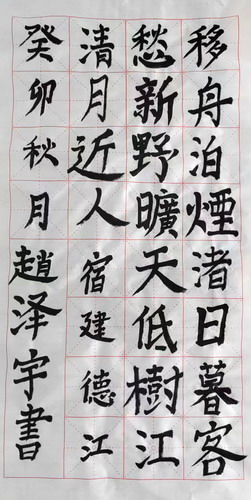 移舟泊煙渚日暮客
愁新野曠天低樹江
清月近人宿建德江
癸卯秋月趙泽宇書